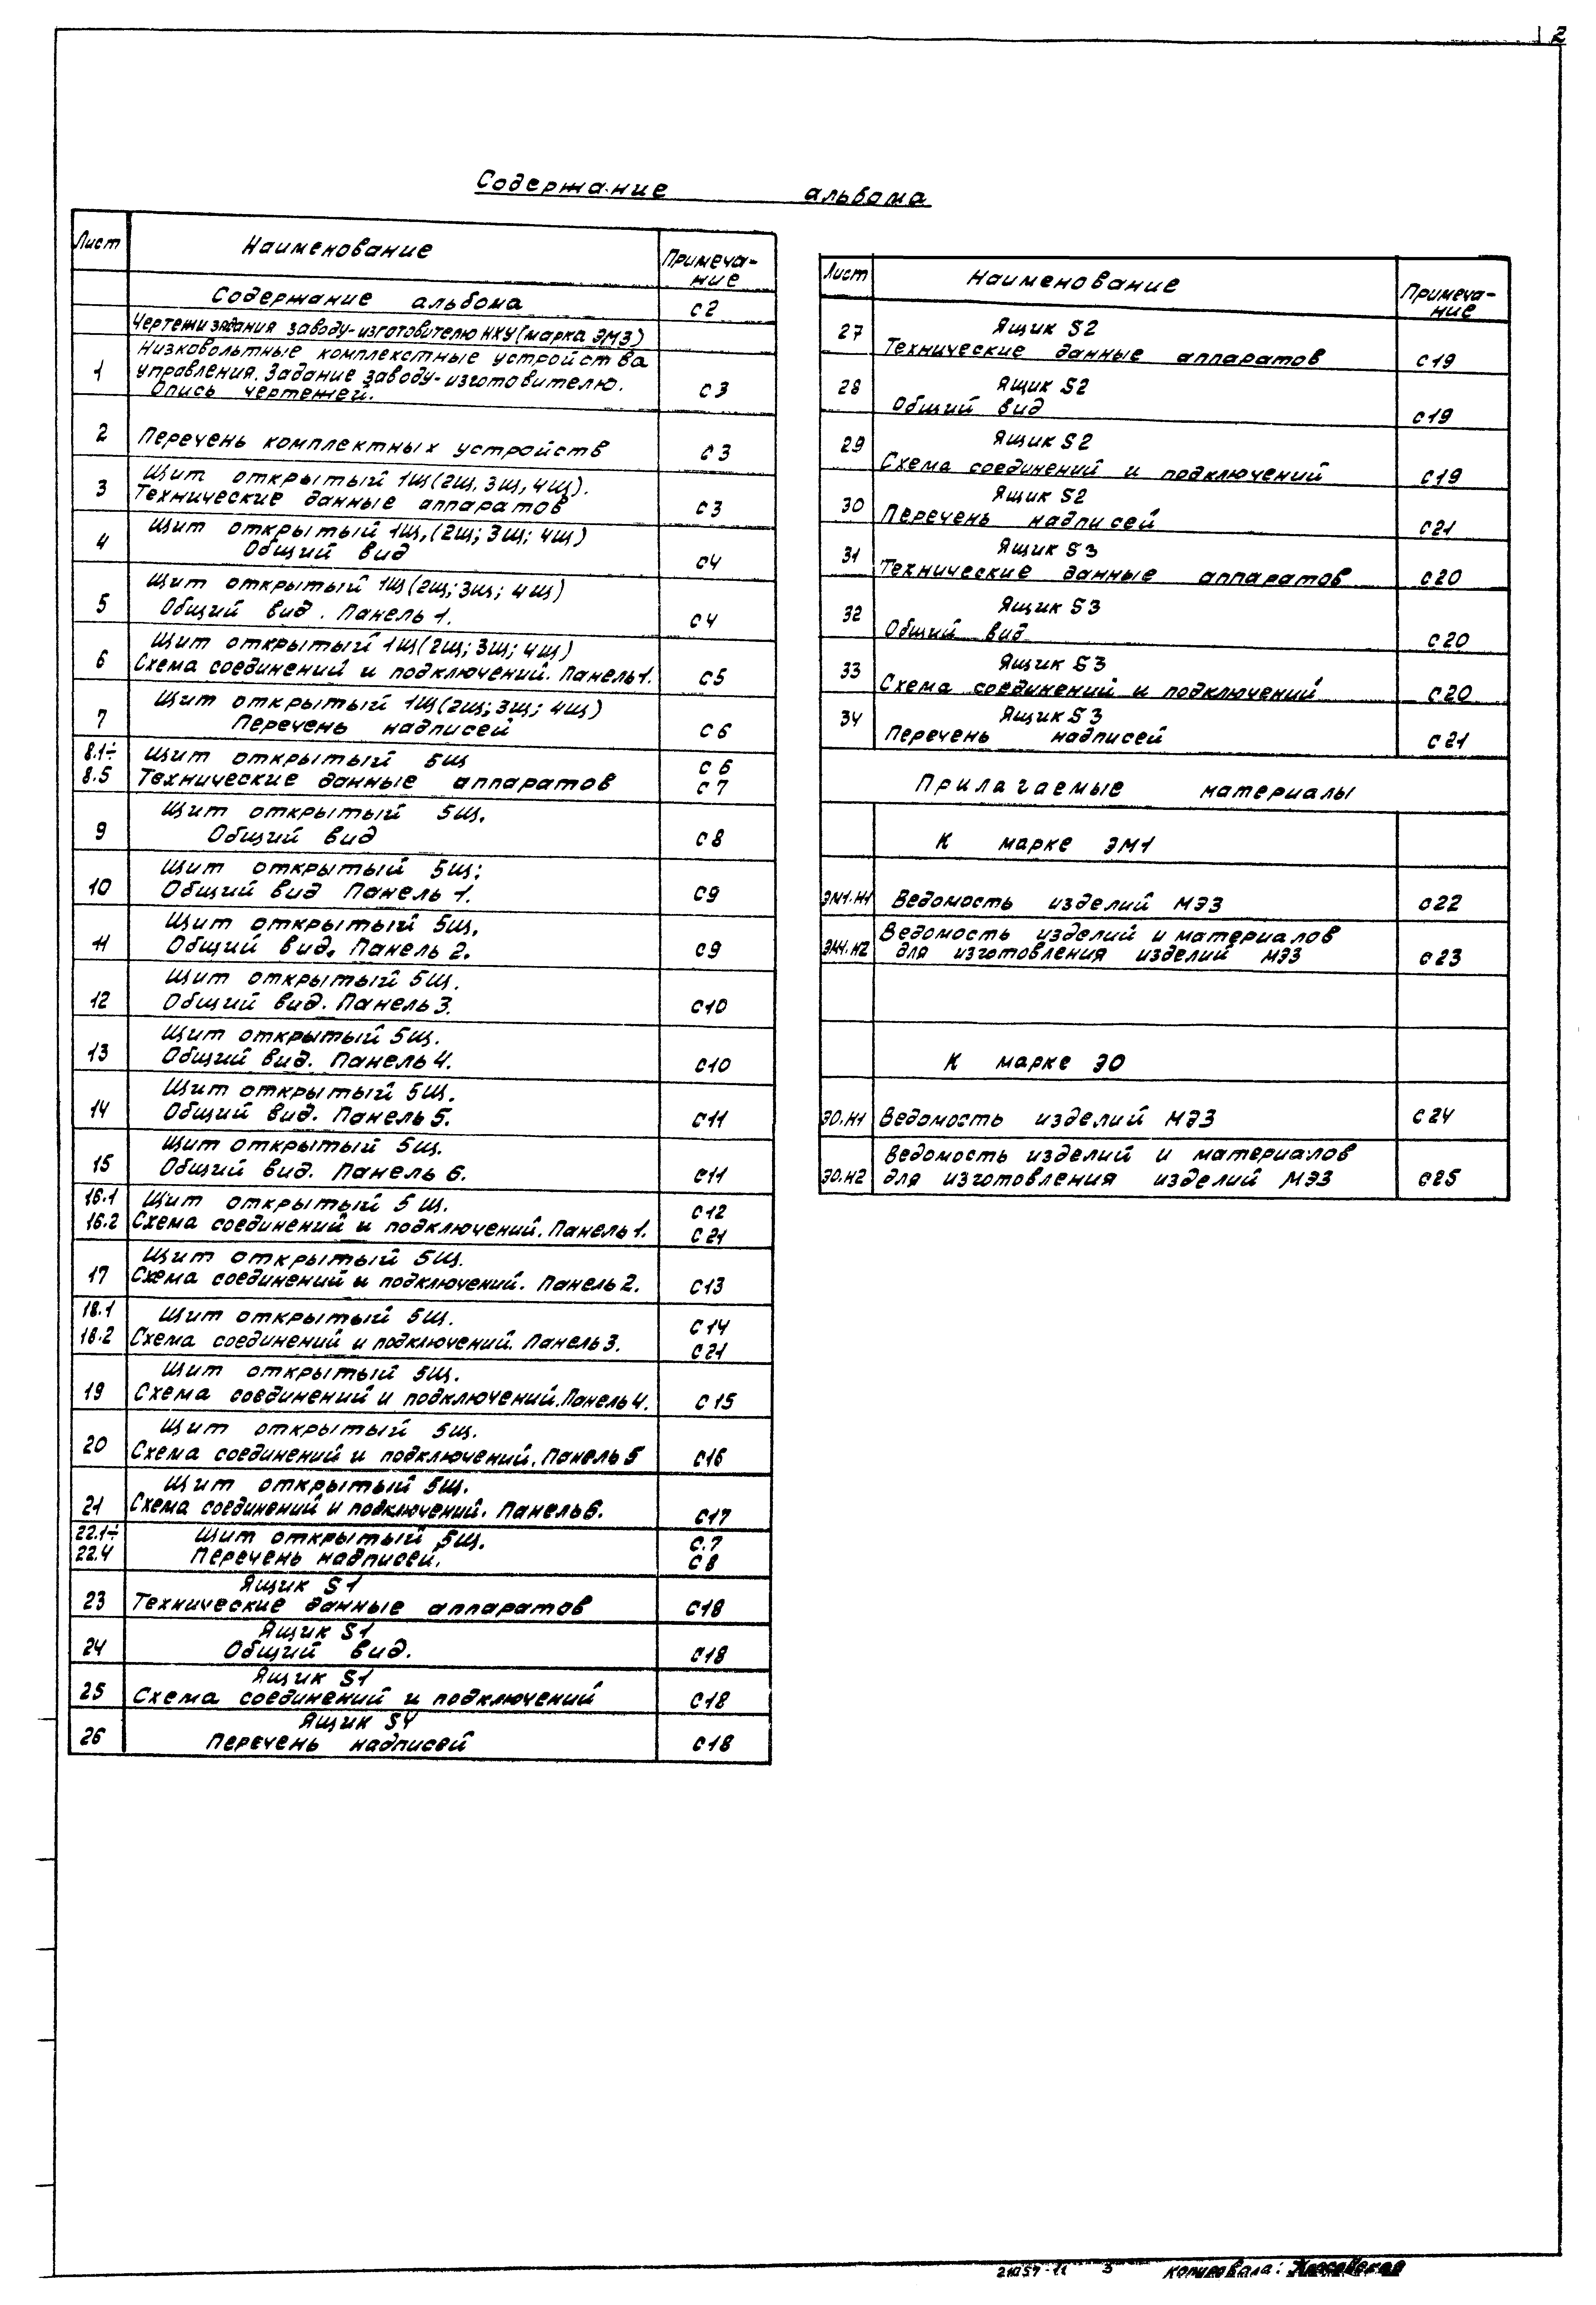 2
Содержание альбома
Лист Наименование Примеча-
ние
Содержание альбома с2
Чертежи задания заводу-изготовителю НКУ (марка ЭМЗ)
Низковольтные комплекстные устройства
1 управления. Задание заводу-изготовителю.
Опись чертежей. с3
2 Перечень комплектных устройств с3
Щит открытый 1щ(2щ, 3щ, 4щ).
3 Технические данные аппаратов с3
Щит открытый 1щ,(2щ; 3щ; 4щ)
4 Общий вид с4
Щит открытый 1щ(2щ; 3щ; 4щ)
5 Общий вид. Панель 1. с4
Щит открытый 1щ(2щ; 3щ; 4щ)
6 Схема соединений и подключений. Панель 1. с5
Щит открытый 1щ(2щ; 3щ; 4щ)
7 Перечень надписей с6
8.1÷ Щит открытый 5щ с6
8.5 Технические данные аппаратов с7
Щит открытый 5щ.
9 Общий вид с8
Щит открытый 5щ;
10 Общий вид Панель 1. с9
Щит открытый 5щ.
11 Общий вид. Панель 2. с9
Щит открытый 5щ.
12 Общий вид. Панель 3. с10
Щит открытый 5щ.
13 Общий вид. Панель 4. с10
Щит открытый 5щ.
14 Общий вид. Панель 5. с11
Щит открытый 5щ.
15 Общий вид. Панель 6. с11
16.1 Щит открытый 5щ. с12
16.2 Схема соединений и подключений. Панель 1. с21
Щит открытый 5щ.
17 Схема соединений и подключений. Панель 2. с13
18.1 Щит открытый 5щ. с14
18.2 Схема соединений и подключений. Панель 3. с21
Щит открытый 5щ.
19 Схема соединений и подключений. Панель 4. с15
Щит открытый 5щ.
20 Схема соединений и подключений. Панель 5 с16
Щит открытый 5щ.
21 Схема соединений и подключений. Панель 6. с17
22.1÷ Щит открытый 5щ. с.7
22.4 Перечень надписей. с8
Ящик S1
23 Технические данные аппаратов с18
Ящик S1
24 Общий вид. с18
Ящик S1
25 Схема соединений и подключений с18
Ящик S4
26 Перечень надписей с18
Лист Наименование Примеча-
ние
27 Ящик S2
Технические данные аппаратов с19
28 Ящик S2
Общий вид с19
29 Ящик S2
Схема соединений и подключений с19
Ящик S2
30 Перечень надписей с21
31 Ящик S3
Технические данные аппаратов с20
32 Ящик S3
Общий вид с20
33 Ящик S3
Схема соединений и подключений с20
34 Ящик S3
Перечень надписей с21
Прилагаемые материалы
К марке ЭМ1
ЭМ1.Н1 Ведомость изделий МЭЗ с22
Ведомость изделий и материалов
ЭМ1.Н2 для изготовления изделий МЭЗ с23
К марке ЭО
ЭО.Н1 Ведомость изделий МЭЗ с24
Ведомость изделий и материалов
ЭО.Н2 для изготовления изделий МЭЗ с25
3 копировала: